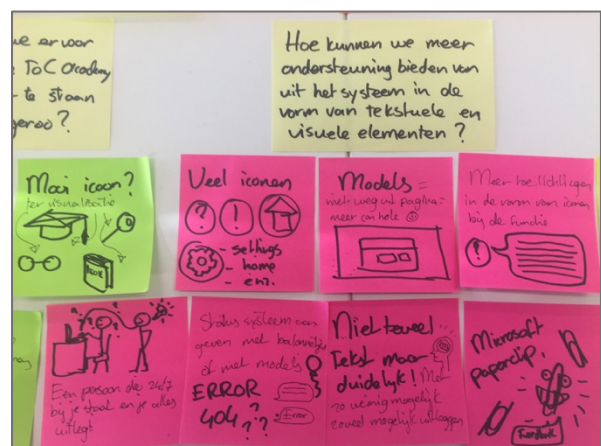 we ervoor
ToC Academy
te staan
geroo?
Hoe kunnen we meer
ondersteuning bieden van
uit het systeem in de
vorm van tekstuele en
visuele elementen?
Mooi icoon?
ter visualisatie
BOOK
Veel iconen
? !
- settings
- home
- enz.
Models =
niet weg uit pagina =
meer can hele
Meer toelichtingen
in de vorm van iconen
bij de functie
!
Een persoon die 24/7
bij je staat en je alles
uitlegt
Status systeem aan
geven met balonnetjes
of met models
ERROR
404 ???
Error
Niet teveel
tekst maar
duidelijk! Met
zo weinig mogelijk
zoveel mogelijk uitleggen
Microsoft
paperclip,